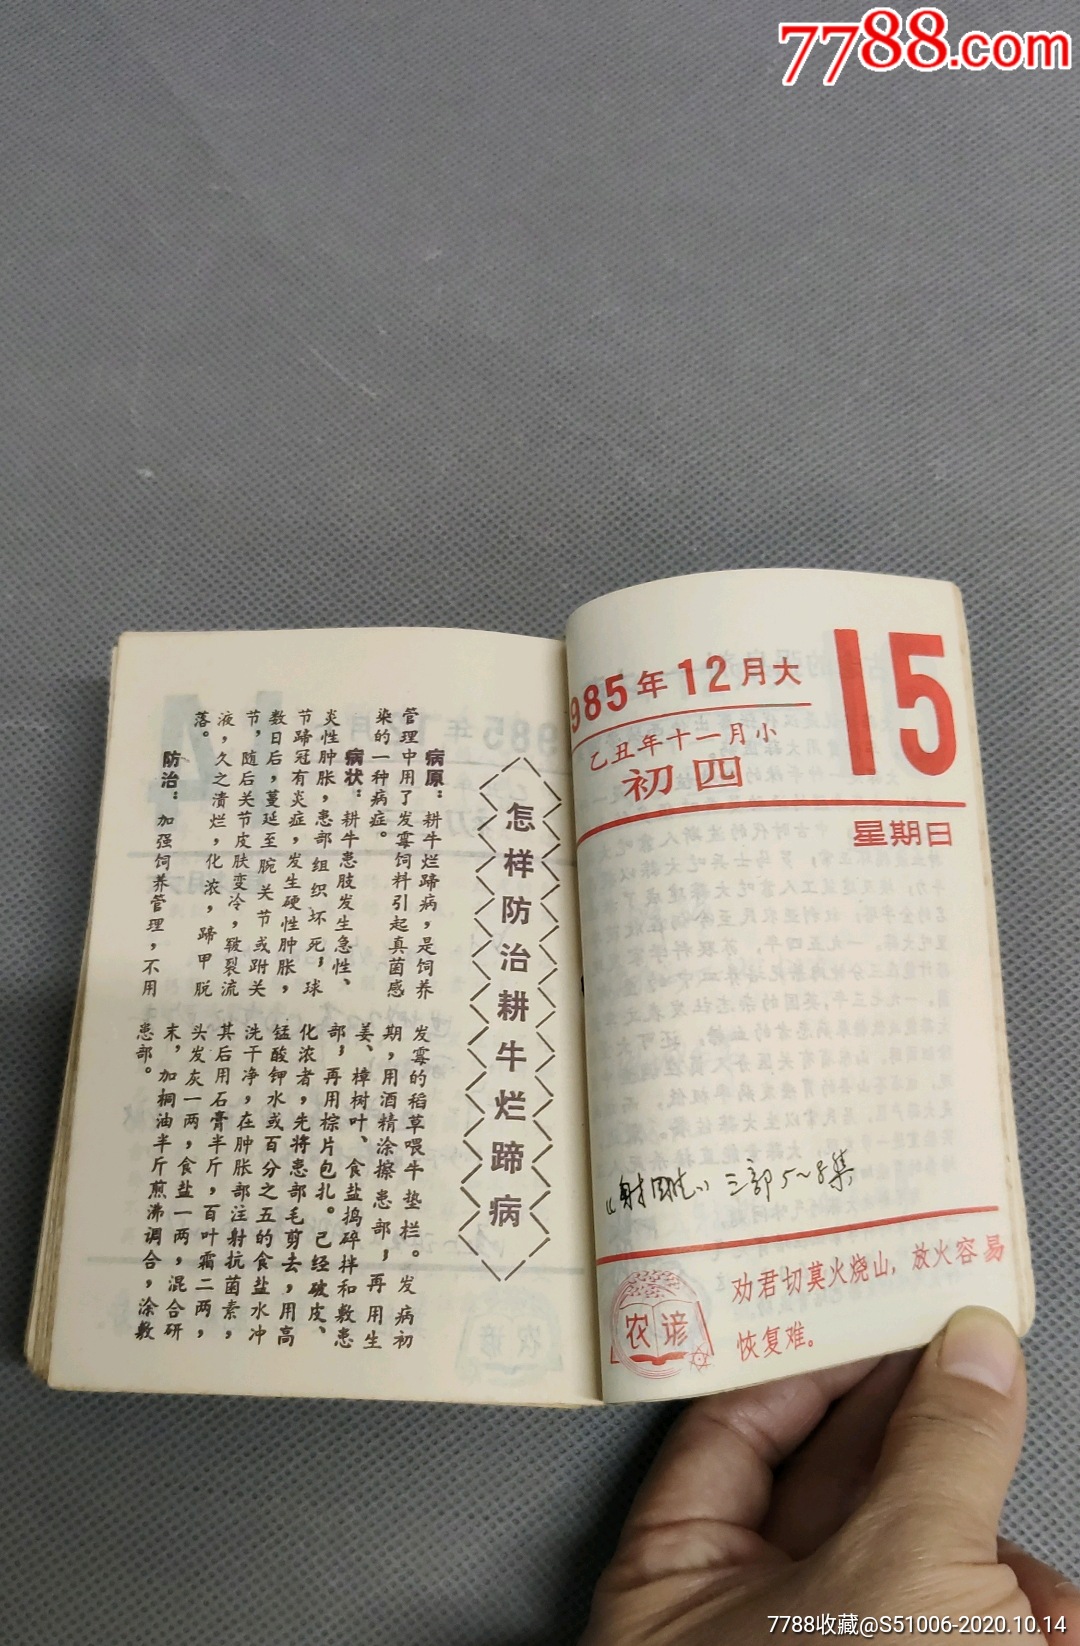 7788.com
怎样防治耕牛烂蹄病
病原：耕牛烂蹄病，是饲养
管理中用了发霉饲料引起真菌感
染的一种病症。
病状：耕牛患肢发生急性、
炎性肿胀，患部组织坏死；球
节蹄冠有炎症，发生硬性肿胀，
数日后，蔓延至腕关节或跗关
节，随后关节皮肤变冷，皲裂流
液，久之溃烂，化浓，蹄甲脱
落。
防治：加强饲养管理，不用
发霉的稻草喂牛垫栏。发病初
期，用酒精涂擦患部，再用生
姜、樟树叶、食盐捣碎拌和敷患
部；再用棕片包扎。已经破皮、
化浓者，先将患部毛剪去，用高
锰酸钾水或百分之五的食盐水冲
洗干净，在肿胀部注射抗菌素，
其后用石膏半斤，百叶霜二两，
头发灰一两，食盐一两，混合研
末，加桐油半斤煎沸调合，涂敷
患部。
985年12月大
15
乙丑年十一月小
初四
星期日
三部5~8集
农谚
劝君切莫火烧山，放火容易
恢复难。
7788收藏@S51006-2020.10.14